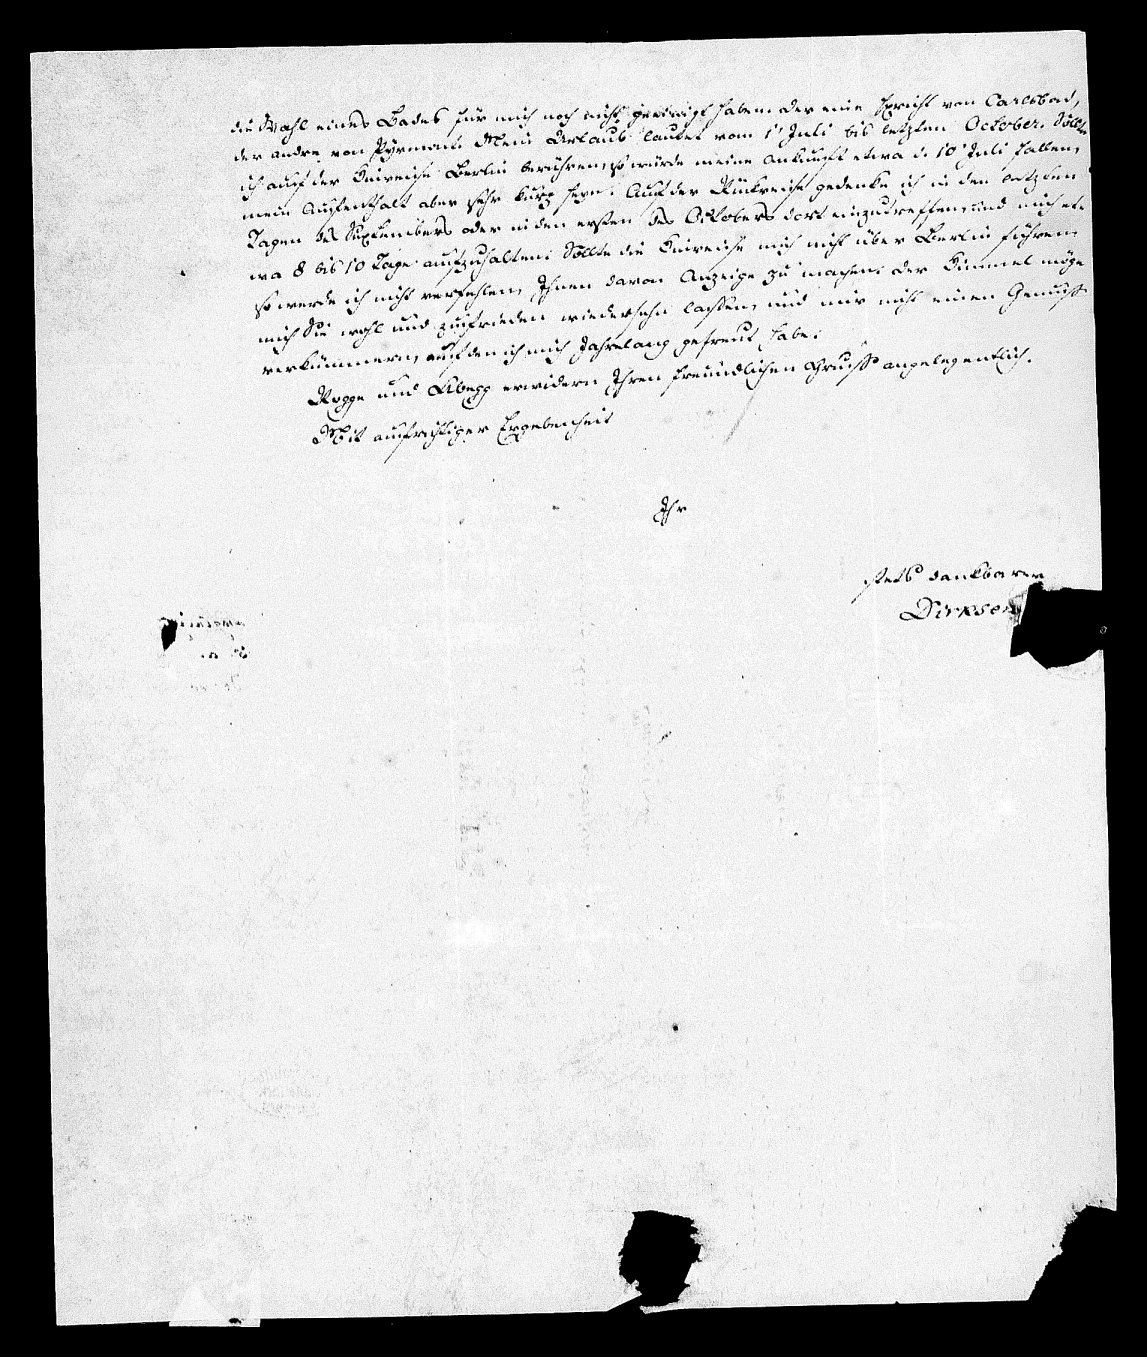 die Wahl eines Bades für mich noch nicht geeinigt haben: der eine spricht von Carlsbad,
der andre von Pyrmont. Mein Urlaub lautet vom 1 Juli bis letzten October. Sollte
ich auf der Hinreise Berlin berühren, so würde meine Ankunft etwa d. 10 Juli fallen,
mein Aufenthalt aber sehr kurz seyn. Auf der Rückreise gedenke ich in den letzten
Tagen des Septembers oder in den ersten des Octobers dort einzutreffen, und mich et-
wa 8 bis 10 Tage aufzuhalten. Sollte die Hinreise mich nicht über Berlin führen,
so werde ich nicht verfehlen, Ihnen davon Anzeige zu machen. Der Himmel möge
mich Sie wohl und zufrieden wiedersehn lassen, und mir nicht einen Genuß
verkümmern, auf den ich mich Jahrelang gefreut habe.
Rogge und Abegg erwidern Ihren freundlichen Gruß angelegentlich.
Mit aufrichtiger Ergebenheit
Ihr
stets dankbarer
Dirksen